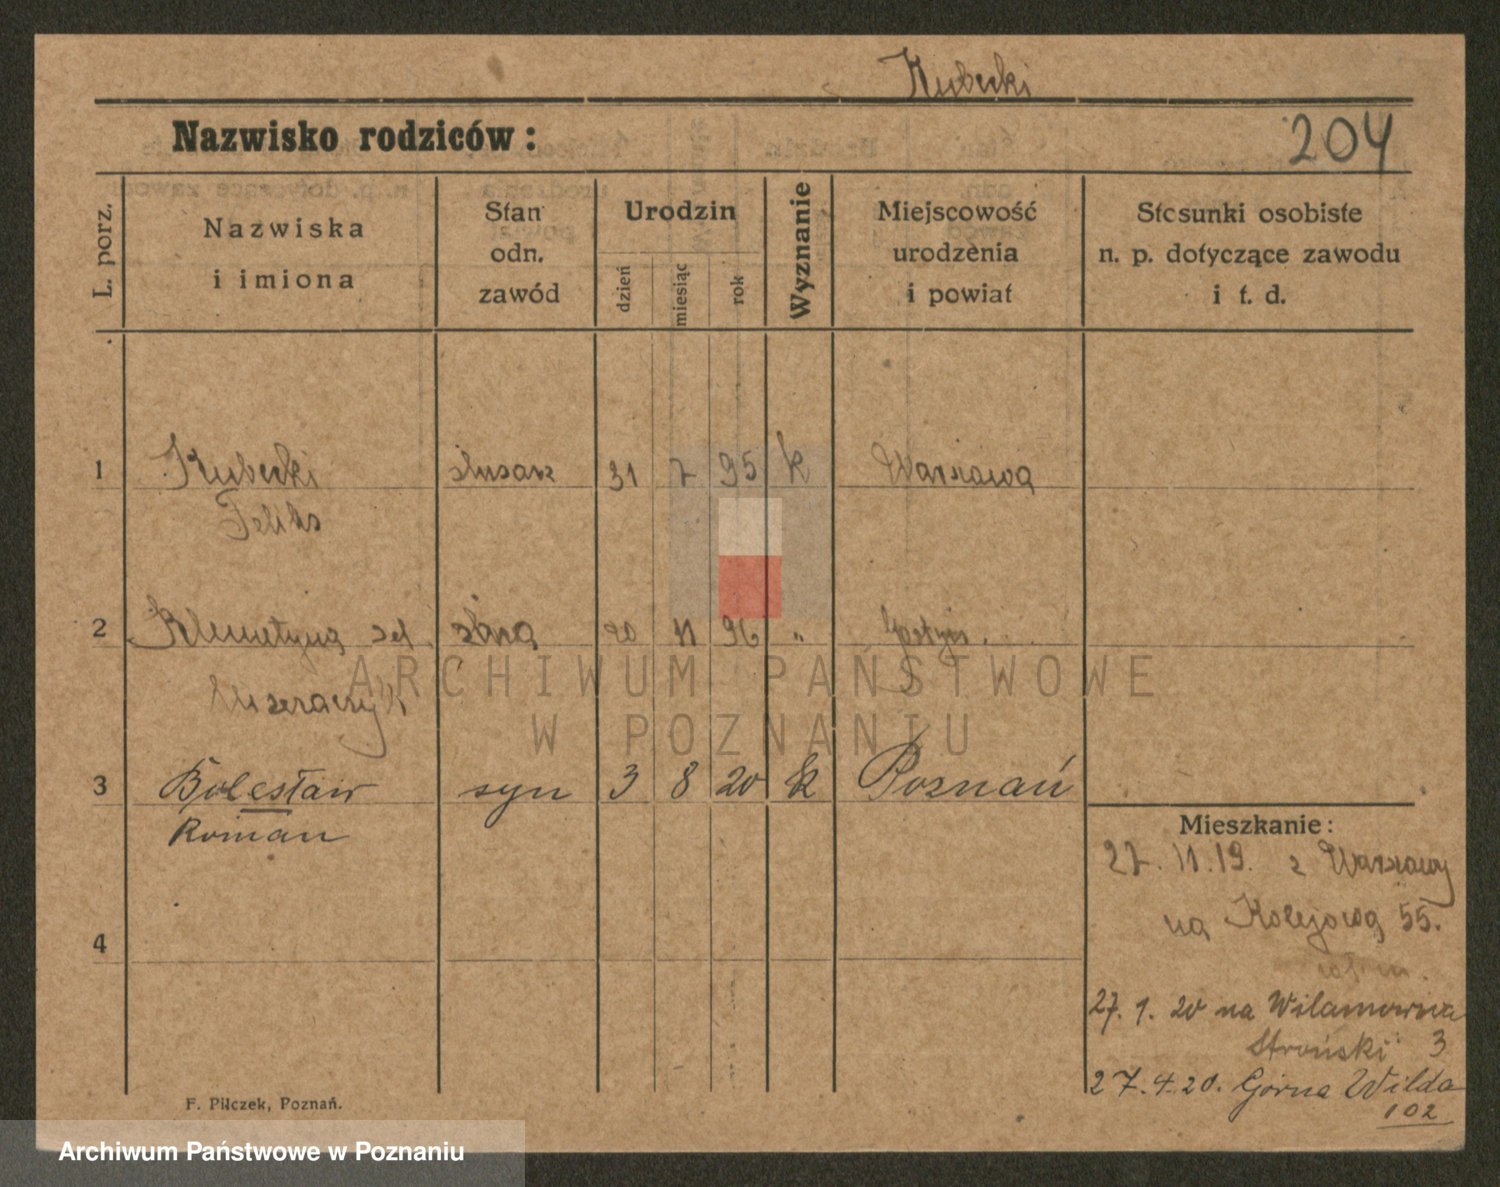 Kubecki
Nazwisko rodziców:
204
L. porz.
Nazwiska
i imiona
Stan
odn.
zawód
Urodzin
dzień
miesiąc
rok
Wyznanie
Miejscowość
urodzenia
i powiat
Stosunki osobiste
n. p. dotyczące zawodu
i t. d.
1 Kubecki ślusarz 31 7 95 k Warszawa
Feliks
2 Klemetyna żona 20 11 96 "
3 Bolesław syn 3 8 20 k Poznań
Roman
4
Mieszkanie:
27.11.19. z Warszawy
na Kolejową 55.
27.1.20 na
Stroński 3
27.4.20. Górna Wilda
102
F. Pilczek, Poznań.
ARCHIWUM PAŃSTWOWE
W POZNANIU
Archiwum Państwowe w Poznaniu